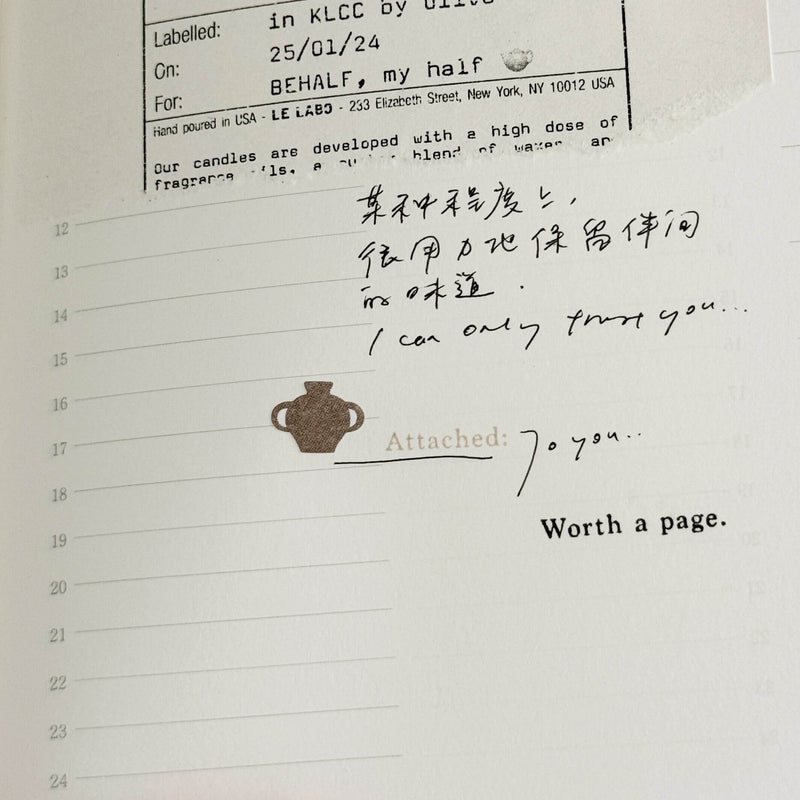 Labelled: in KLCC by
On: 25/01/24
For: BEHALF, my half
Hand poured in USA - LE LABO - 233 Elizabeth Street, New York, NY 10012 USA
Our candles are developed with a high dose of
blend of
12
某种程度上,
13
很用力地保留伴侣
14
的味道.
15
I can only trust you...
16
17
Attached: To you..
18
Worth a page.
19
20
21
22
23
24